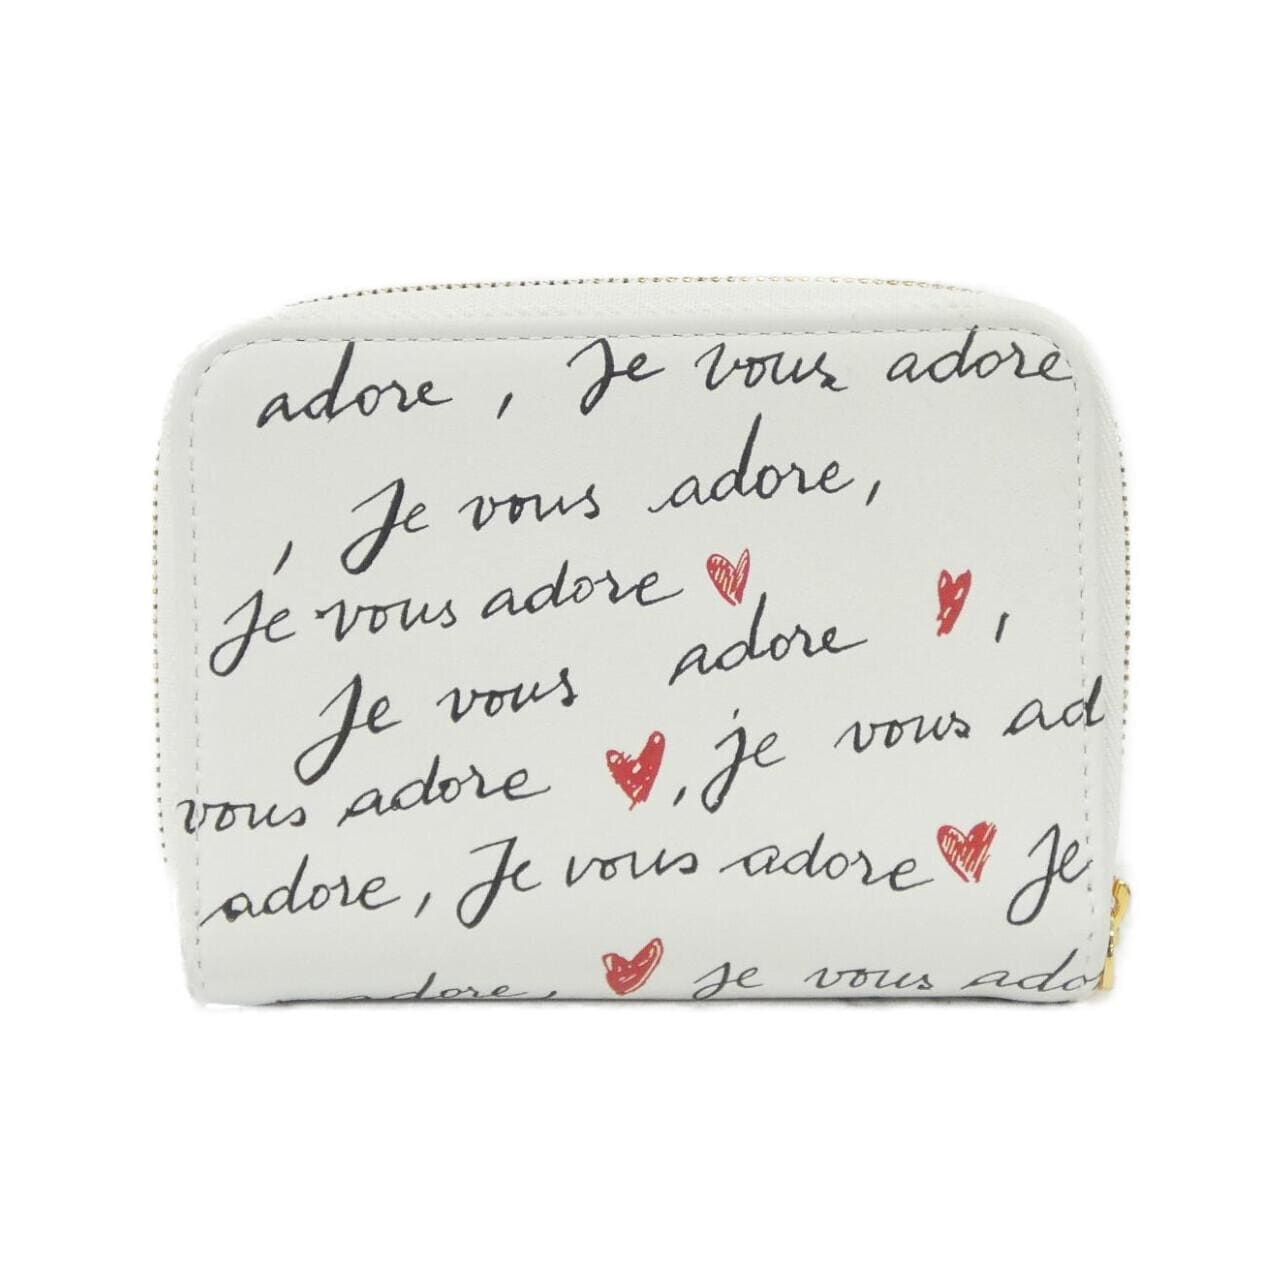 adore , Je vous adore
, Je vous adore,
Je vous adore
adore ,
Je vous
vous adore , je vous ad
adore, Je vous adore Je
adore, je vous ado